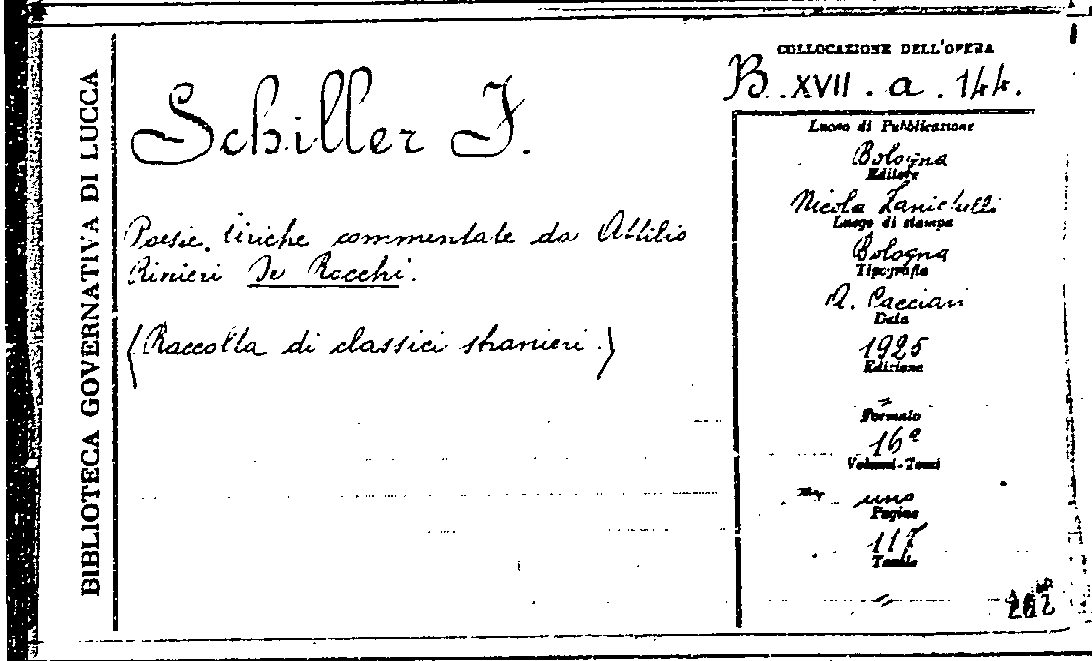 BIBLIOTECA GOVERNATIVA DI LUCCA
COLLOCAZIONE DELL'OPERA
B. XVII. a. 144.
Schiller F.
Poesie liriche commentate da Attilio
Rinieri De Rocchi.
(Raccolta di classici stranieri.)
Luogo di Pubblicazione
Bologna
Editore
Nicola Zanichelli
Luogo di stampa
Bologna
Tipografia
A. Cacciari
Data
1925
Edizione
=
Formato
16°
Volumi-Tomi
uno
Pagine
117
Tavole
=